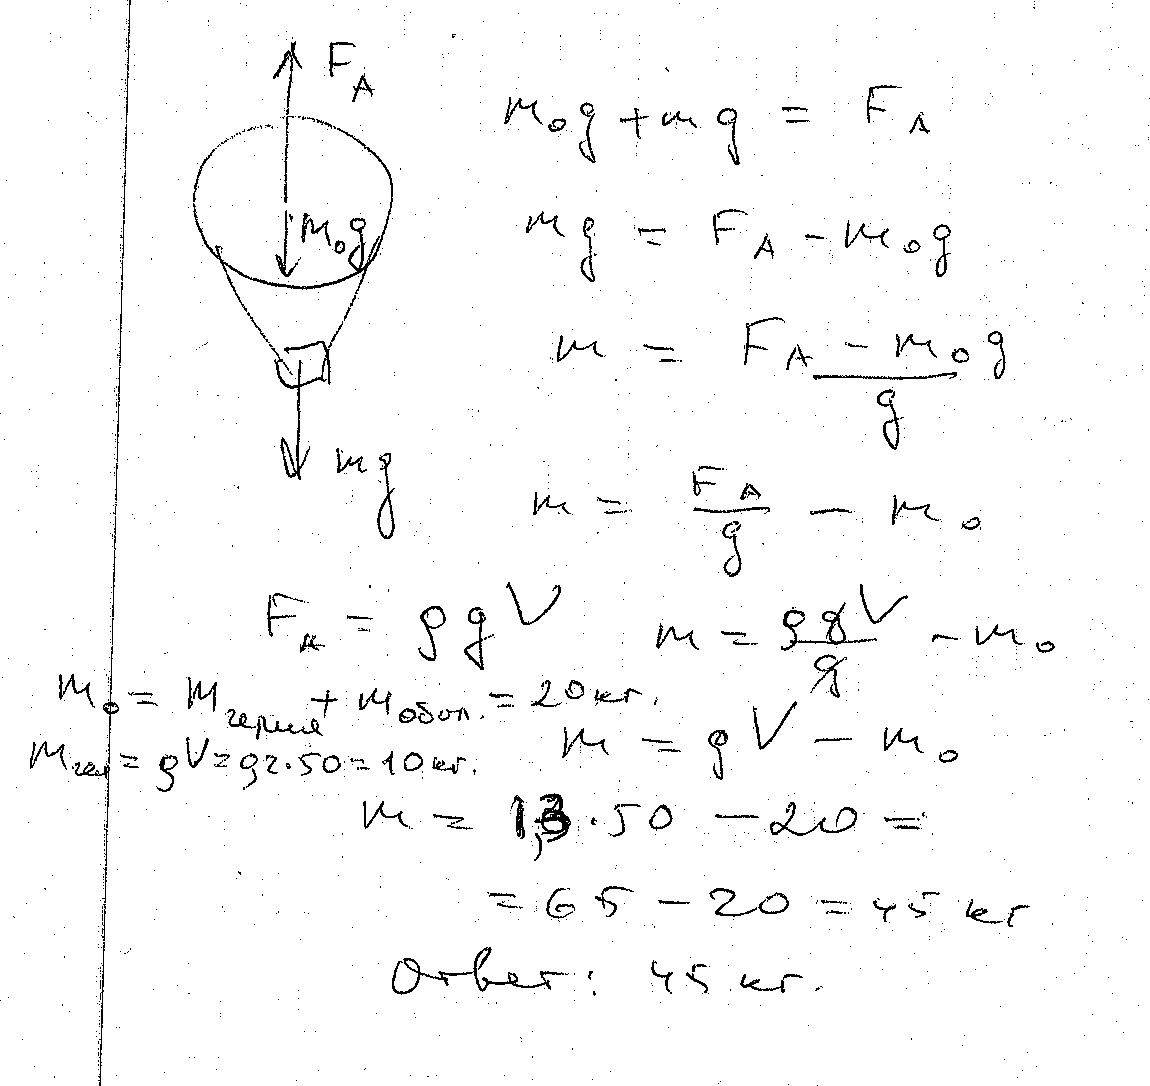 F_A
m₀g + mg = F_A
m₀g
mg = F_A − m₀g
m = (F_A − m₀g)/g
mg
m = F_A/g − m₀
F_A = ρgV m = ρgV/g − m₀
m₀ = m гелия + m обол. = 20 кг.
m = ρV − m₀
m гел = ρV = 0,2·50 = 10 кг.
m = 1,3·50 − 20 =
= 65 − 20 = 45 кг
Ответ: 45 кг.